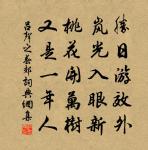 勝日游郊外
嵐光入眼新
桃花開萬樹
又是一年人
呂聲之春郊詞典網集